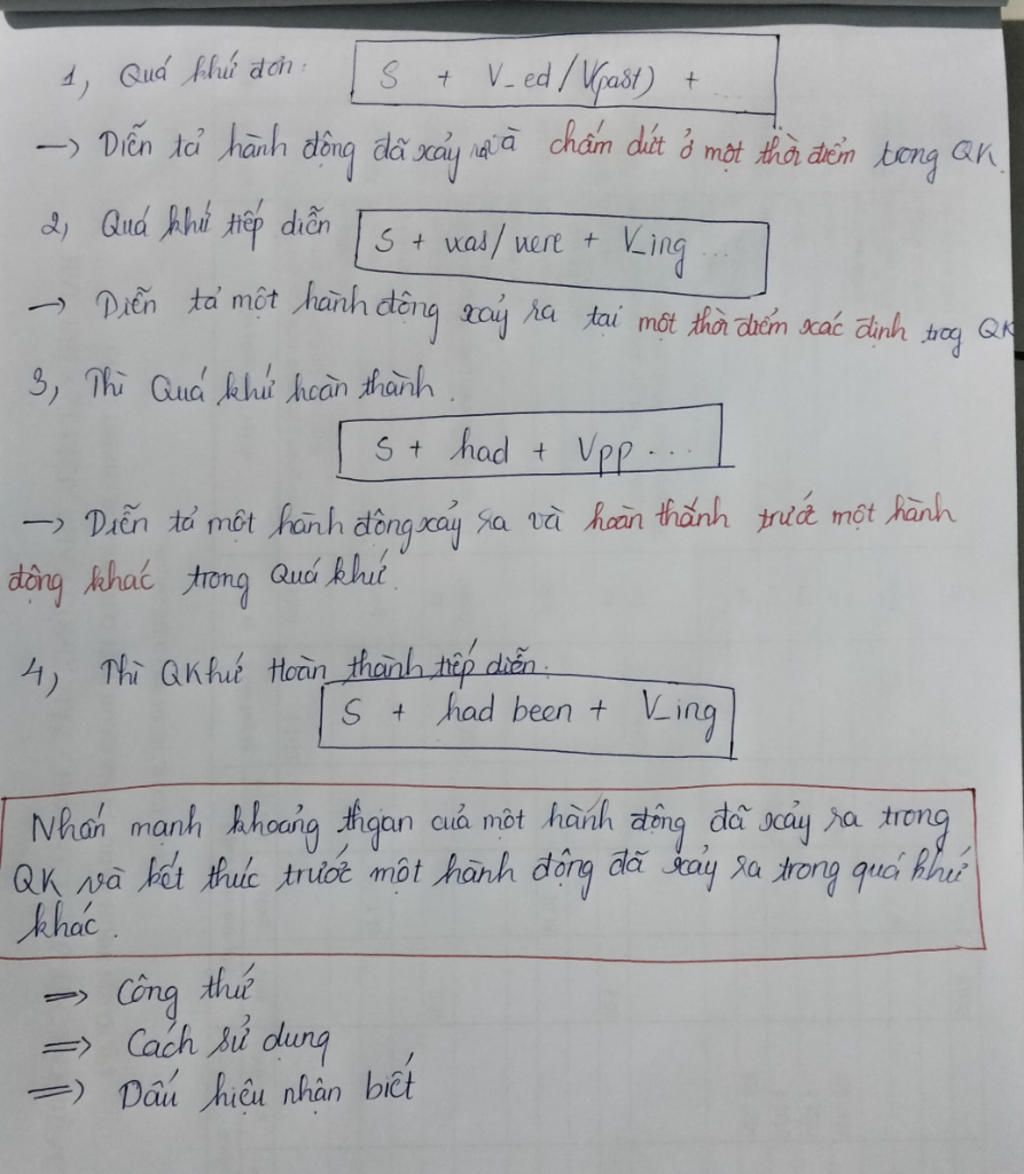 1, Quá khứ đơn: S + V_ed/V(past) + ...
→ Diễn tả hành động đã xảy và chấm dứt ở một thời điểm trong QK.
2, Quá khứ tiếp diễn S + was/were + V_ing ...
→ Diễn tả một hành động xảy ra tại một thời điểm xác định trog QK
3, Thì Quá khứ hoàn thành.
S + had + Vpp ...
→ Diễn tả một hành động xảy ra và hoàn thành trước một hành
động khác trong Quá khứ.
4, Thì QKhứ Hoàn thành tiếp diễn.
S + had been + V_ing
Nhấn mạnh khoảng thgan của một hành động đã xảy ra trong
QK và kết thúc trước một hành động đã xảy ra trong quá khứ
khác.
=> Công thứ
=> Cách sử dụng
=> Dấu hiệu nhận biết